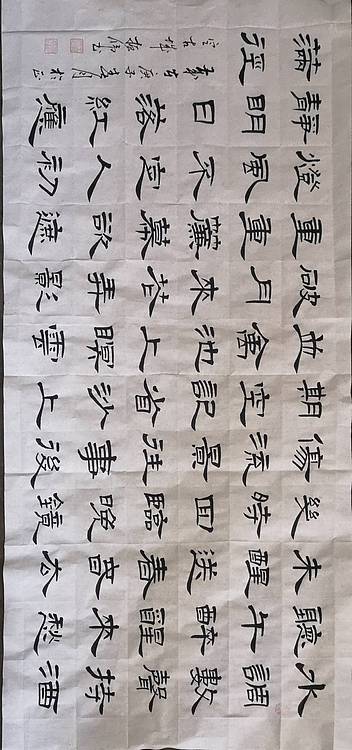 水調數聲持酒
聽午醉醒來愁
未醒送春春去
幾時回臨晚鏡
傷流景往事後
期空記省沙上
並禽池上暝雲
破月來花弄影
重重簾幕密遮
燈風不定人初
靜明日落紅應
滿徑
庚子春月